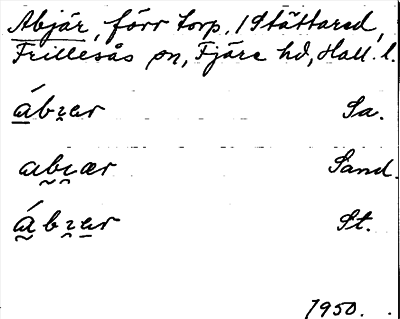 Abjär, förr torp, i Stättared,
Frillesås sn, Fjäre hd, Hall. l.
ábɀer Sa.
abɀær Sand.
ábɀer St.
1950.